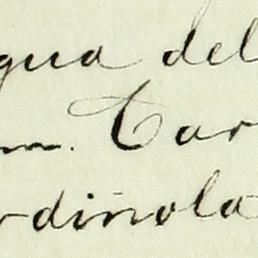 gua del
m. Car
rdinola